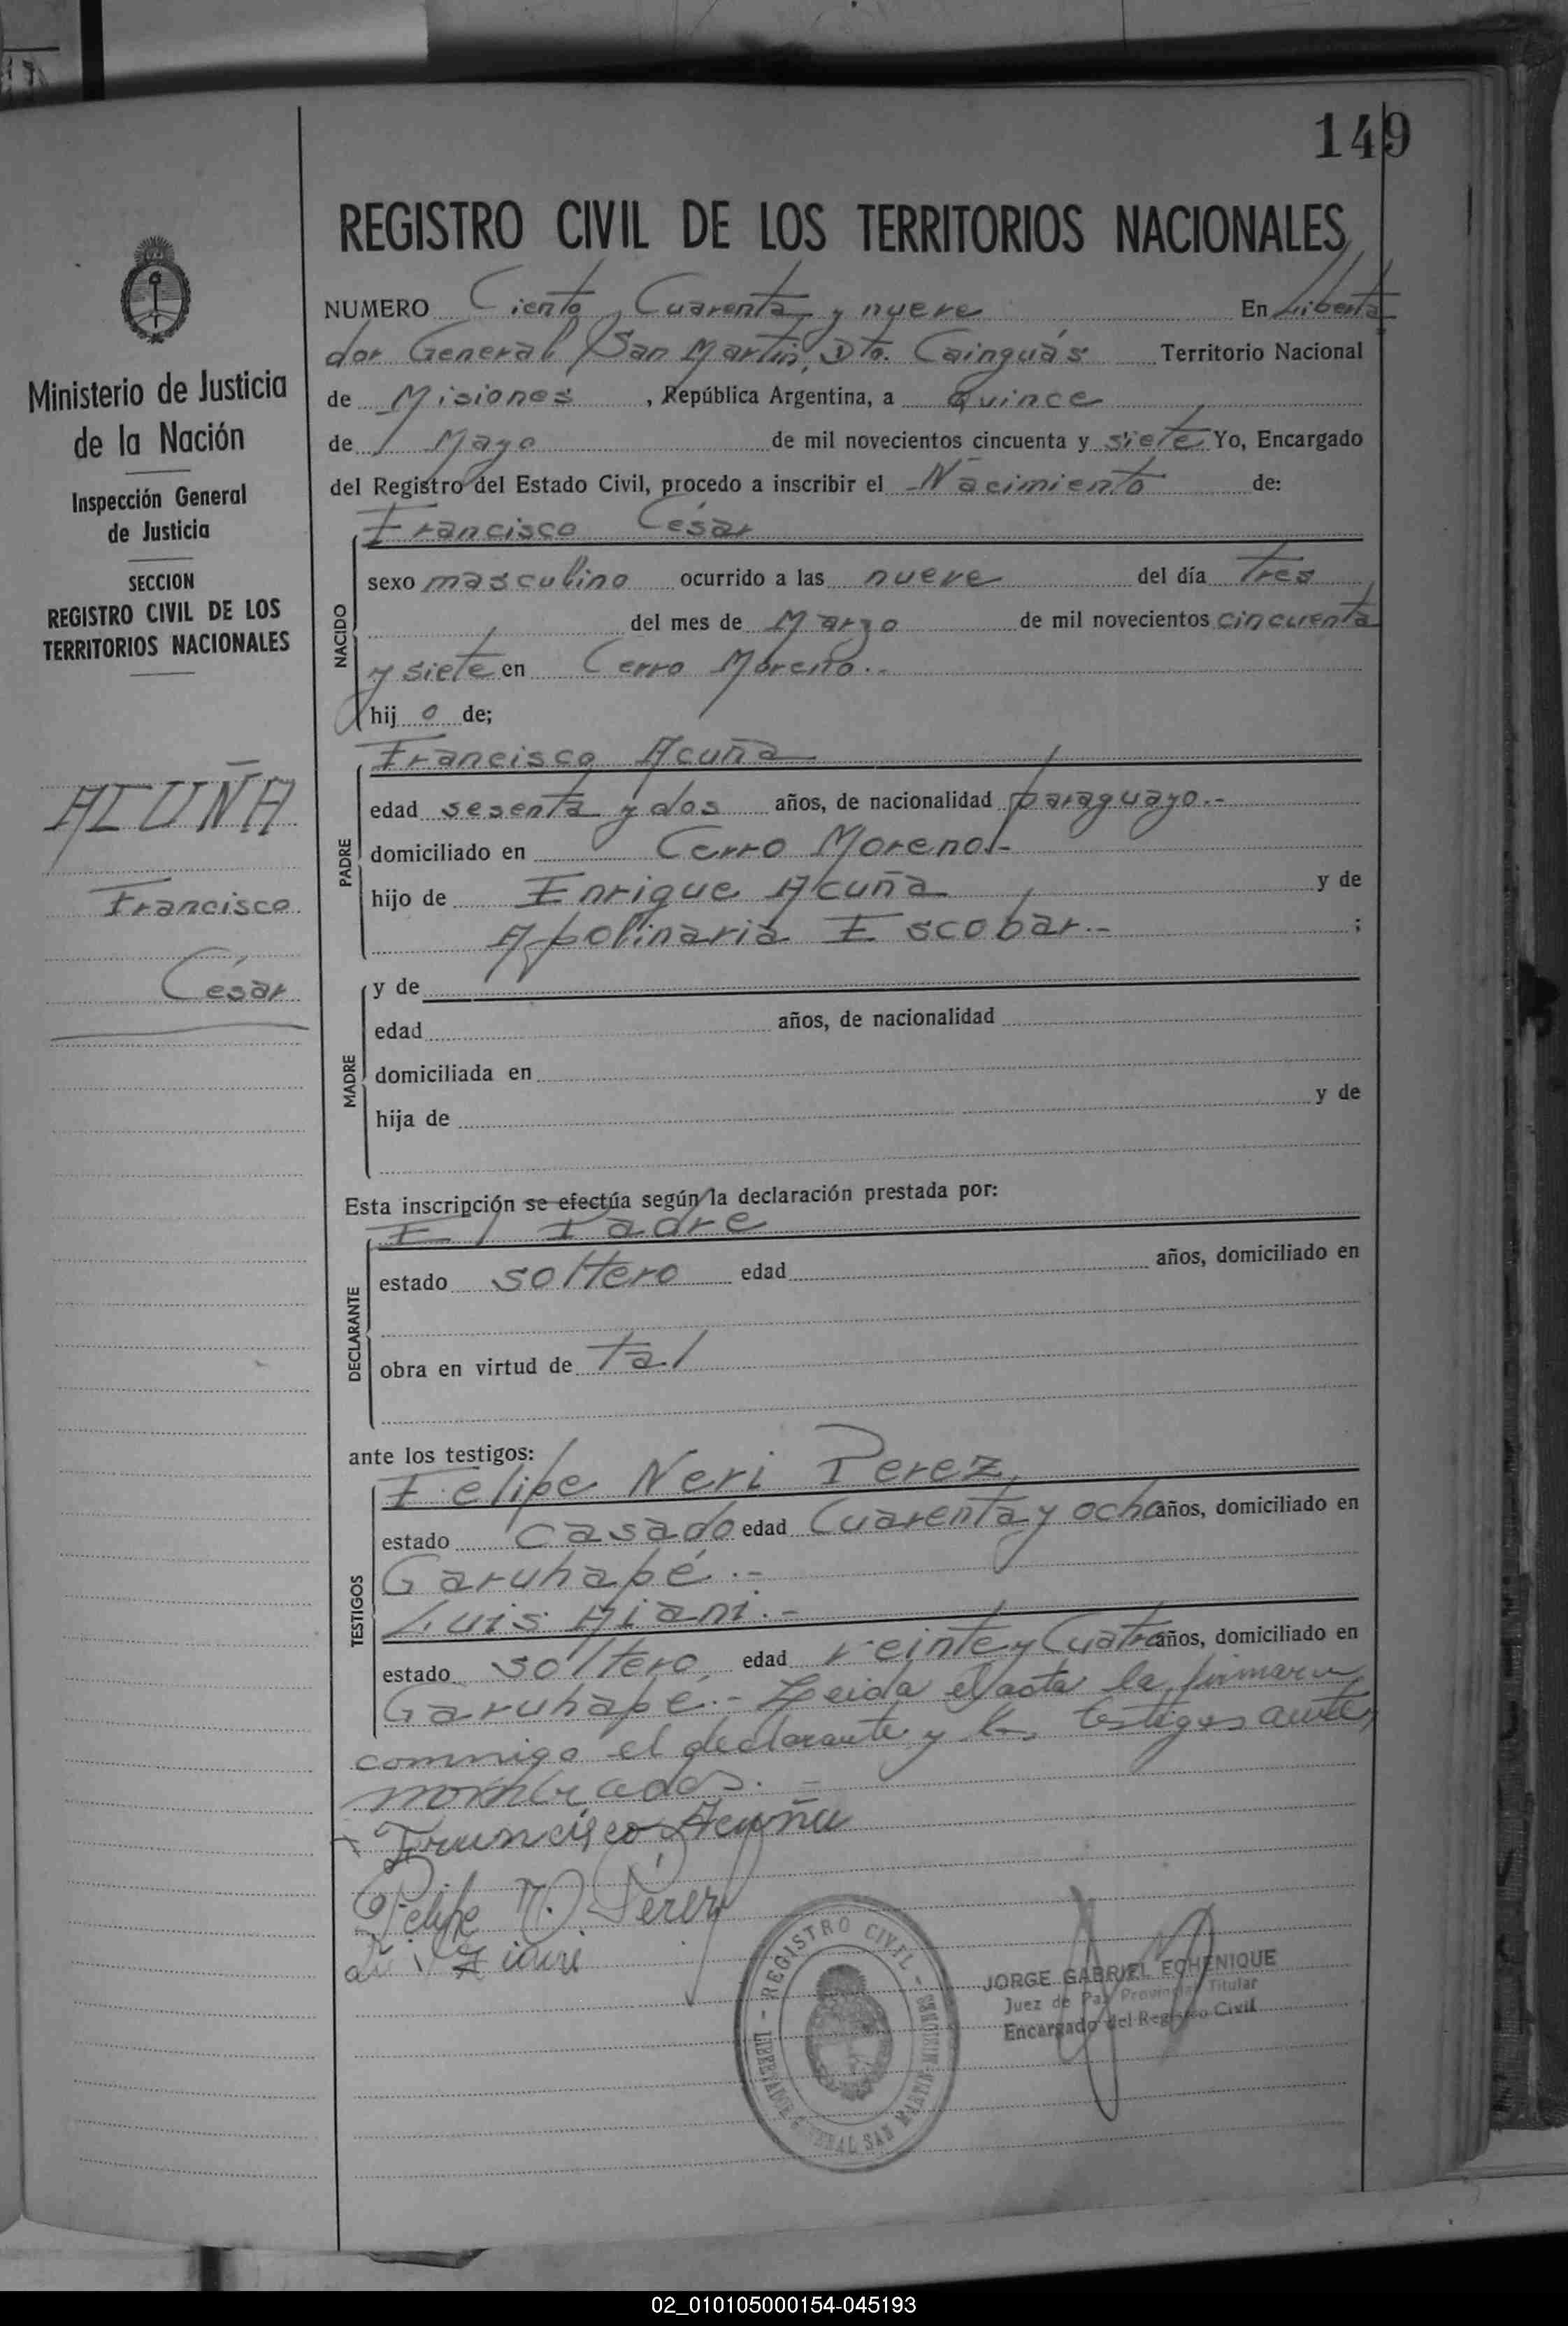 149
REGISTRO CIVIL DE LOS TERRITORIOS NACIONALES
Ministerio de Justicia
de la Nación
Inspección General
de Justicia
SECCION
REGISTRO CIVIL DE LOS
TERRITORIOS NACIONALES
ACUÑA
Francisco
César
NUMERO Ciento Cuarenta y nueve En Liberta
dor General San Martin, Dto. Cainguás Territorio Nacional
de Misiones , República Argentina, a Quince
de Mayo de mil novecientos cincuenta y siete Yo, Encargado
del Registro del Estado Civil, procedo a inscribir el Nacimiento de:
Francisco César
NACIDO
sexo masculino ocurrido a las nueve del día Tres
del mes de Marzo de mil novecientos cincuenta
y siete en Cerro Moreno.-
hij o de;
Francisco Acuña
PADRE
edad sesenta y dos años, de nacionalidad paraguayo.-
domiciliado en Cerro Moreno.-
hijo de Enrique Acuña y de
Apolinaria Escobar.- ;
MADRE
y de
edad años, de nacionalidad
domiciliada en
hija de y de
Esta inscripción se efectúa según la declaración prestada por:
El Padre
DECLARANTE
estado soltero edad años, domiciliado en
obra en virtud de tal
ante los testigos:
Felipe Neri Perez
TESTIGOS
estado casado edad Cuarenta y ocho años, domiciliado en
Garuhapé.-
Luis Aiani.-
estado soltero edad veinte y Cuatro años, domiciliado en
Garuhapé.- Leida el acta la firmaron
conmigo el declarante y los testigos ante
nombrados.-
Francisco Acuña
Felipe N. Pérez
REGISTRO CIVIL
LIBERTADOR GENERAL SAN MARTIN - MISIONES
JORGE GABRIEL ECHENIQUE
Juez de Paz Provincial Titular
Encargado del Registro Civil
02_010105000154-045193